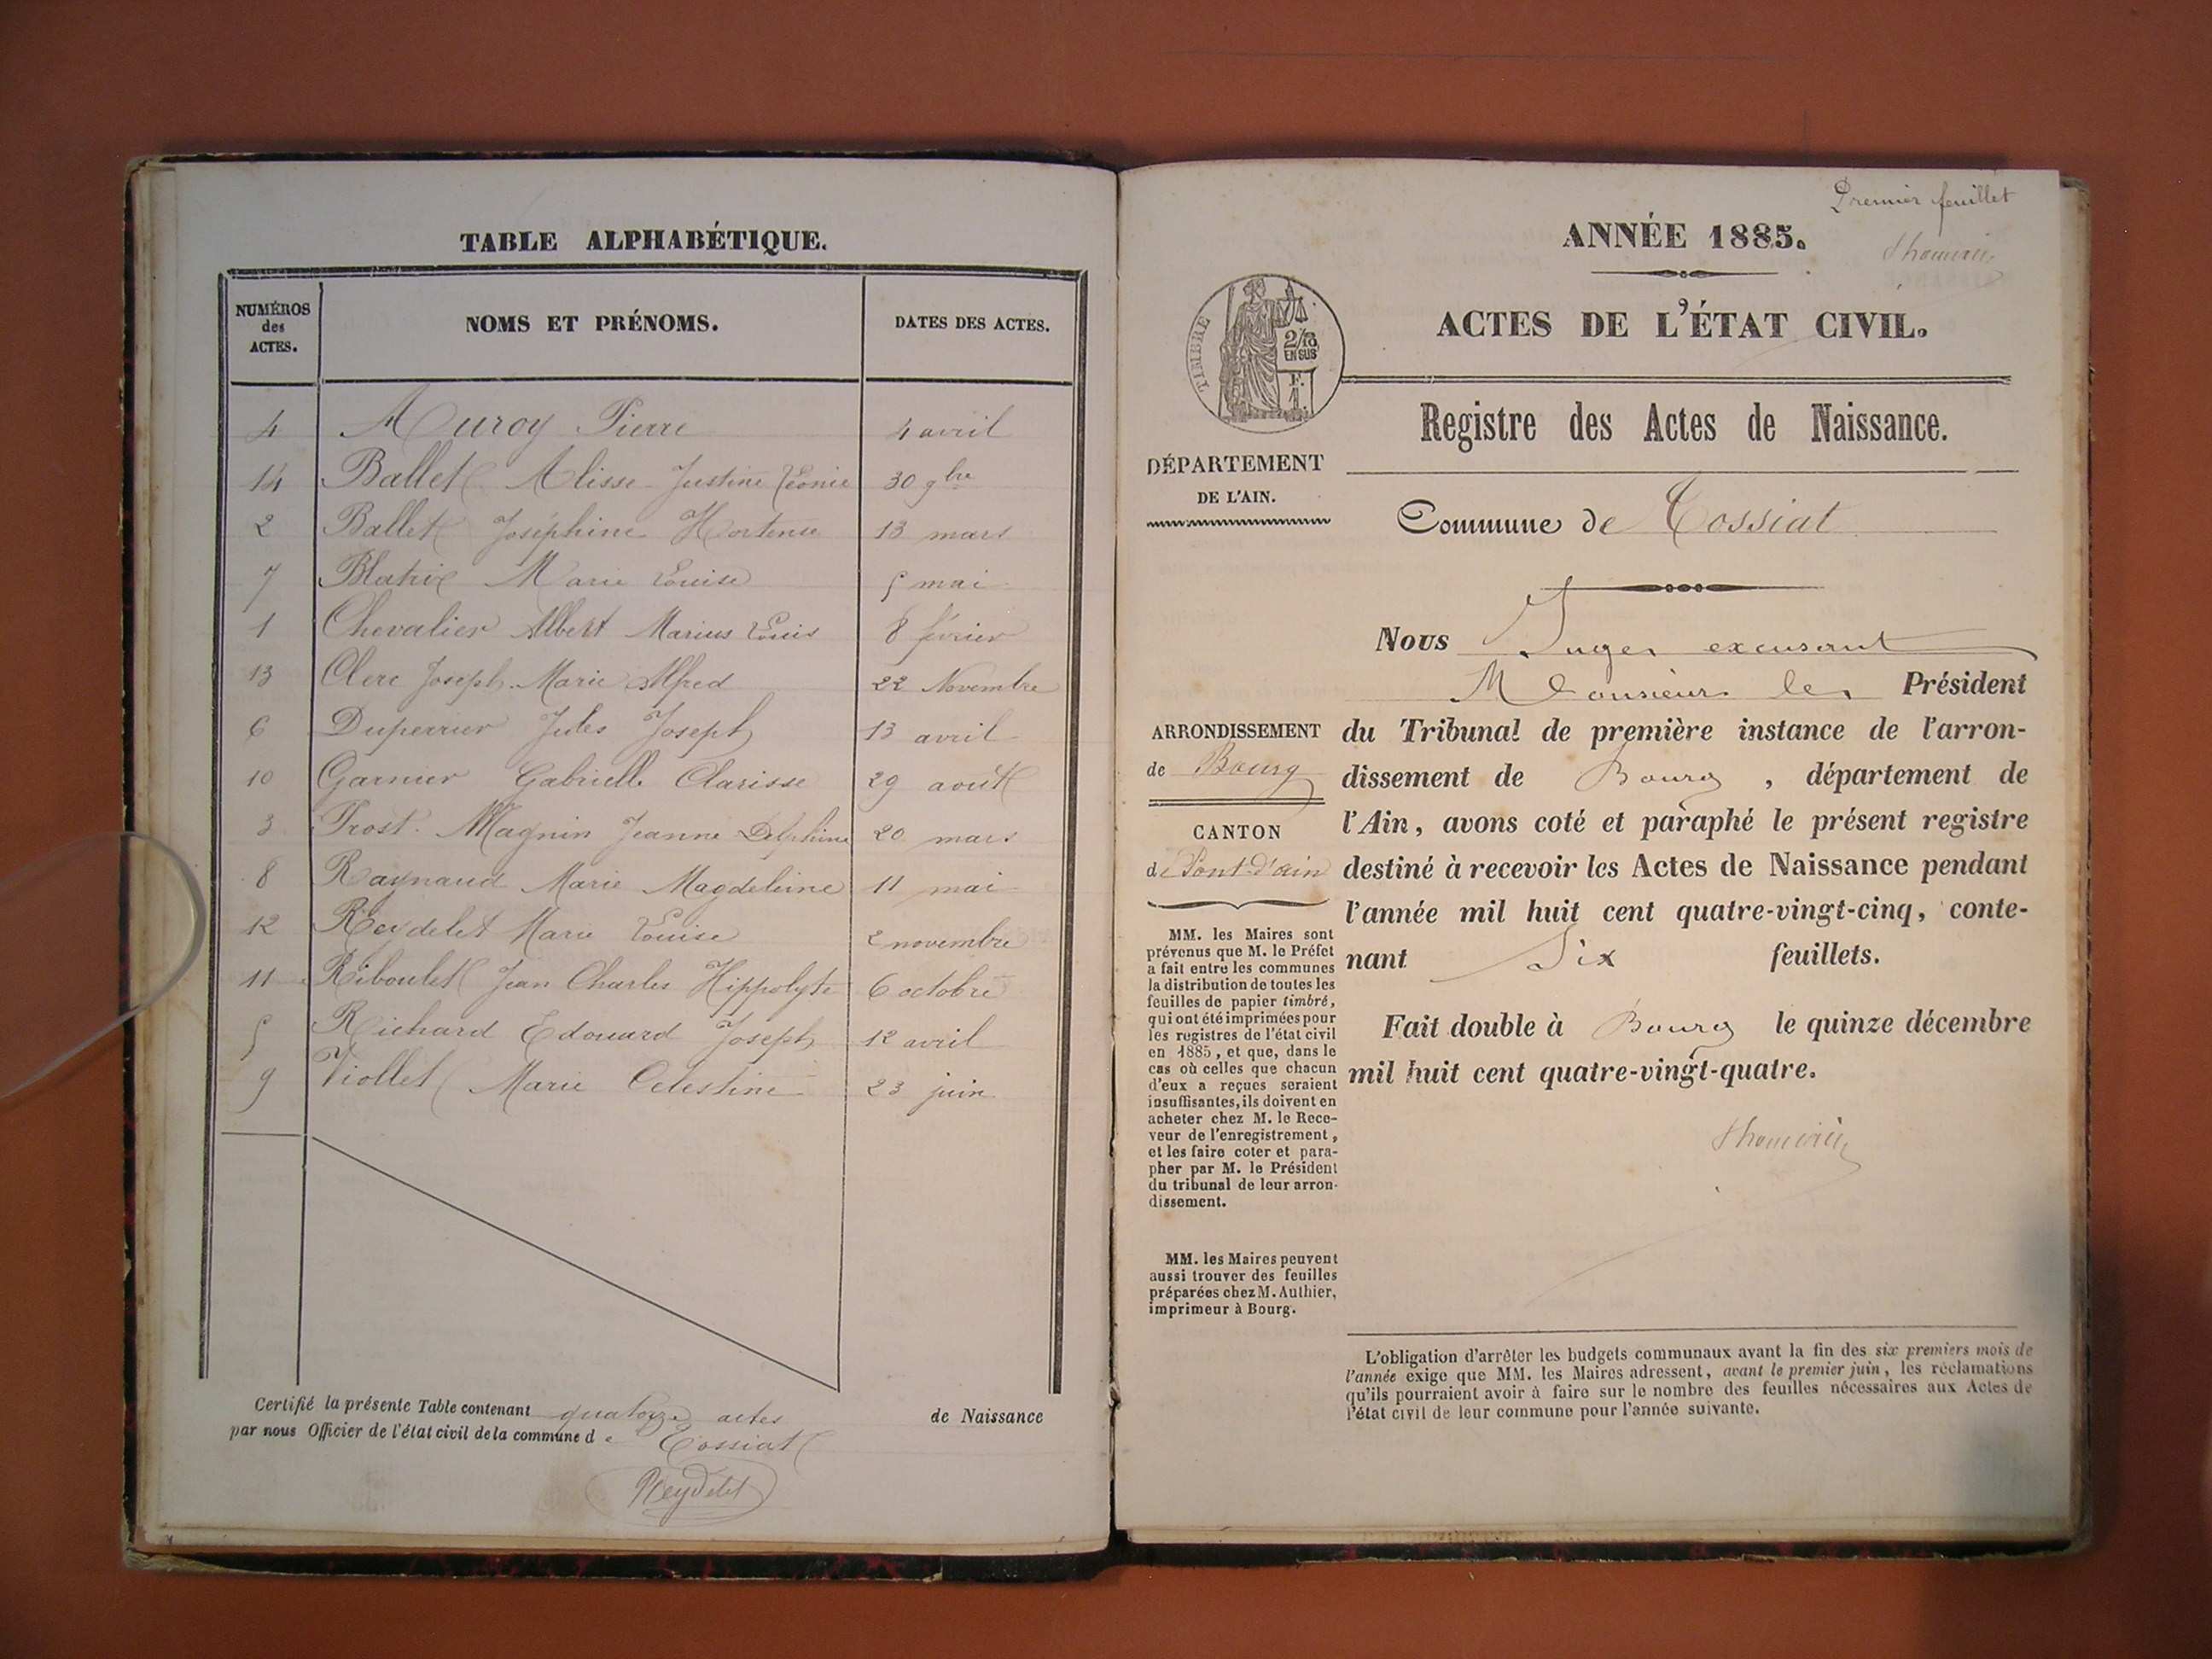 TABLE ALPHABÉTIQUE.
NUMÉROS des ACTES. NOMS ET PRÉNOMS. DATES DES ACTES.
4 Auroy Pierre 4 avril
14 Ballet Alisse Justine Léonie 30 9bre
2 Ballet Joséphine Hortense 13 mars
7 Blatrix Marie Louise 5 mai
1 Chevalier Albert Marius Louis 8 février
13 Clerc Joseph Marie Alfred 22 Novembre
6 Duperrier Jules Joseph 13 avril
10 Garnier Gabrielle Clarisse 29 août
3 Prost Magnin Jeanne Delphine 20 mars
8 Raynaud Marie Magdeleine 11 mai
12 Reydelet Marie Louise 2 novembre
11 Riboulet Jean Charles Hippolyte 6 octobre
5 Richard Edouard Joseph 12 avril
9 Viollet Marie Celestine 23 juin
Certifié la présente Table contenant quatorze actes de Naissance
par nous Officier de l'état civil de la commune de Tossiat
Reydelet
Premier feuillet
ANNÉE 1885.
ACTES DE L'ÉTAT CIVIL.
TIMBRE
2/10
EN SUS
F.
Registre des Actes de Naissance.
DÉPARTEMENT
DE L'AIN.
Commune de Tossiat
Nous Juge excusant
Monsieur le Président
ARRONDISSEMENT
de Bourg
CANTON
de Pont-d'ain
du Tribunal de première instance de l'arron-
dissement de Bourg, département de
l'Ain, avons coté et paraphé le présent registre
destiné à recevoir les Actes de Naissance pendant
l'année mil huit cent quatre-vingt-cinq, conte-
nant Six feuillets.
Fait double à Bourg le quinze décembre
mil huit cent quatre-vingt-quatre.
MM. les Maires sont
prévenus que M. le Préfet
a fait entre les communes
la distribution de toutes les
feuilles de papier timbré,
qui ont été imprimées pour
les registres de l'état civil
en 1885, et que, dans le
cas où celles que chacun
d'eux a reçues seraient
insuffisantes, ils doivent en
acheter chez M. le Rece-
veur de l'enregistrement,
et les faire coter et para-
pher par M. le Président
du tribunal de leur arron-
dissement.
MM. les Maires peuvent
aussi trouver des feuilles
préparées chez M. Authier,
imprimeur à Bourg.
L'obligation d'arrêter les budgets communaux avant la fin des six premiers mois de
l'année exige que MM. les Maires adressent, avant le premier juin, les réclamations
qu'ils pourraient avoir à faire sur le nombre des feuilles nécessaires aux Actes de
l'état civil de leur commune pour l'année suivante.